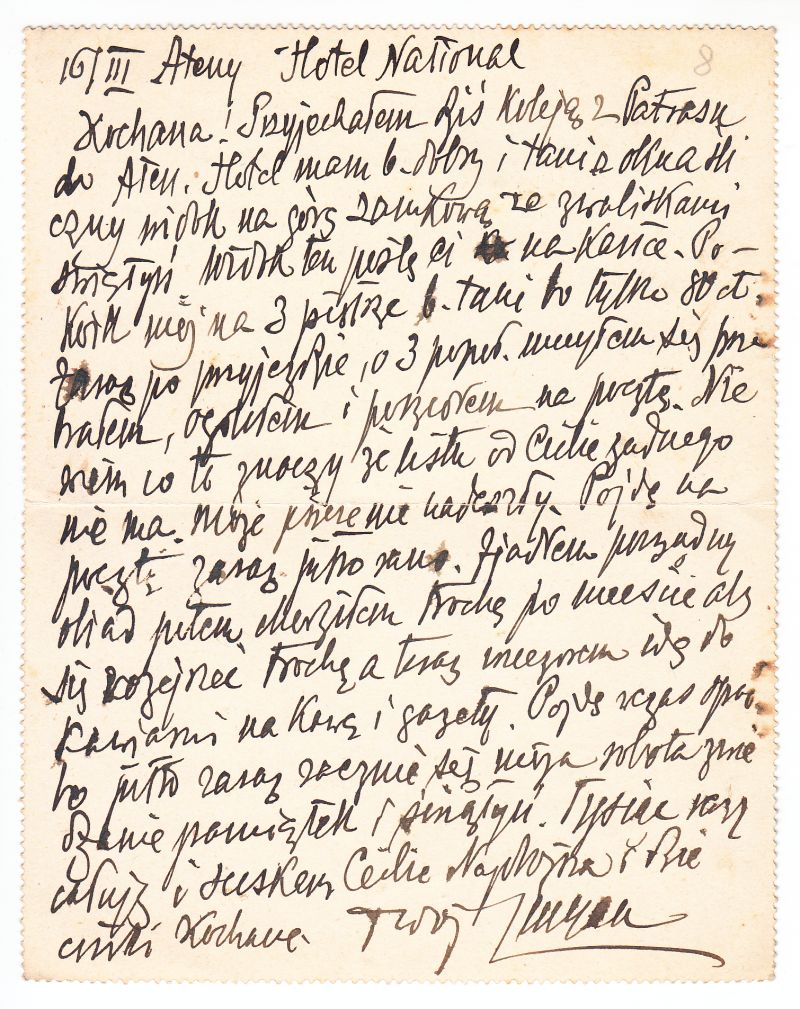 16/III Ateny Hotel National
8
Kochana! Przyjechałem dziś koleją z Patrasu
do Aten. Hotel mam b. dobry i tani z okna śli
czny widok na górę zamkową ze zwaliskami
świątyń widok ten poślę ci na kartce. Po-
koik mój na 3 piętrze b. tani bo tylko 80 ct.
Zaraz po przyjeździe, o 3 popoł. umyłem się prze
brałem, ogoliłem i poszedłem na pocztę. Nie
wiem co to znaczy że listu od Ciebie żadnego
nie ma. Może jeszcze nie nadeszły. Pójdę na
pocztę zaraz jutro rano. Zjadłem porządny
obiad potem chodziłem trochę po mieście aby
się rozejrzeć trochę a teraz wieczorem idę do
kawiarni na kawę i gazety. Pójdę wczas spać
bo jutro zaraz zacznie się moja robota zwie
dzanie pamiątek i świątyń. Tysiąc razy
całuję i ściskam Ciebie Najdroższa i dzie
ciaki Kochane. Twój